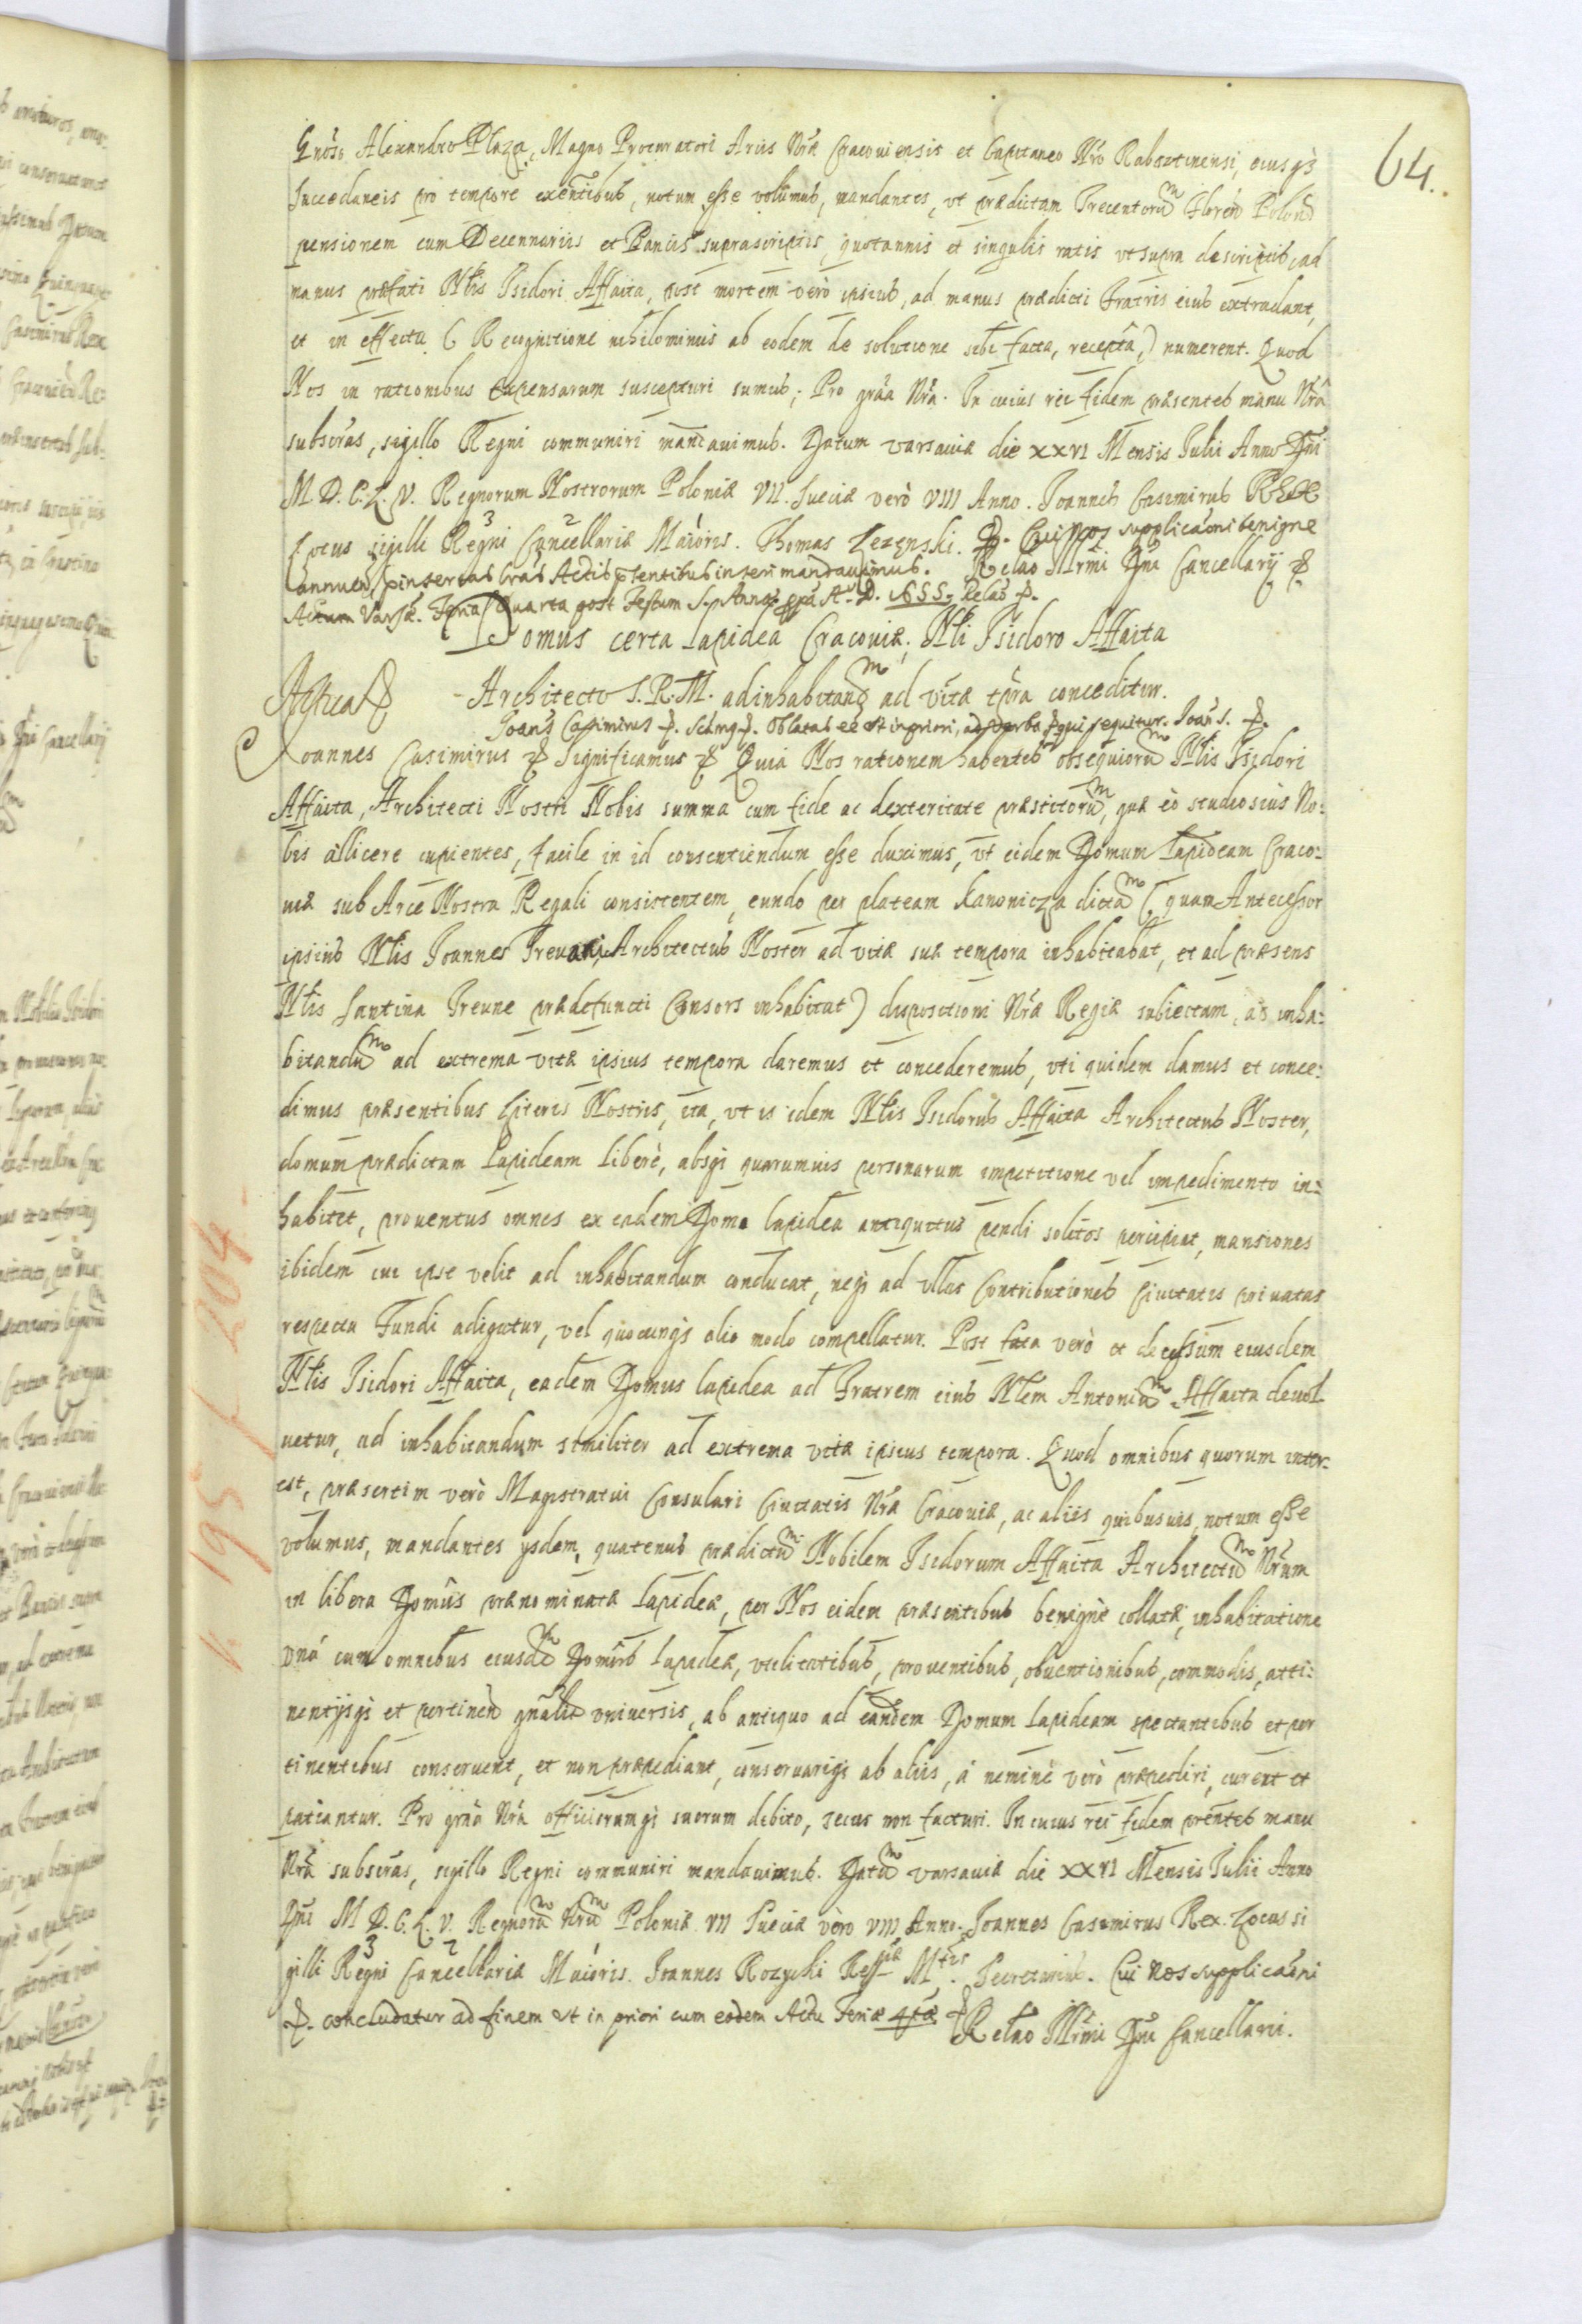 64.
Gnōso Alexandro Płaza, Magno Procuratori Arcis Nrǣ Cracouiensis et Capitaneo Nrō Rabsztinensi, eiusq́
Succedaneis pro tempore exēntibus, notum esse volumus, mandantes, vt prædictam Trecentorūm Floren̄ Polon̄
pensionem cum Decennariis et Pannis suprascriptis, quotannis et singulis ratis vt supra descriptis, ad
manus præfati Nblis Isidori Affaita, post mortem verò ipsius, ad manus prædicti Fratris eius extradant,
et in effectu (Recognitione nihilominus ab eodem de solutione sibi facta, recepta,) numerent. Quod
Nos in rationibus expensarum suscepturi sumus; Pro grāa Nrā. In cuius rei fidem præsentes manu Nrā
subscrās, sigillo Regni communiri mandauimus. Datum varsauiæ die XXVI Mensis Iulii Anno Dnī
M.D.C.L.V. Regnorum Nostrorum Poloniæ VII. Sueciæ verò VIII Anno. Ioannes Casimirus REX
Locus sigilli Regni 3 Cancellariæ 2 Maioris. Thomas Lezenski. Cui Nos supplicaōni benigne
annuen̄, pinsertas lrās Actis pn̄tibus inseri mandauimus. Relāo Illrmi Dnī Cancellarij
Actum Varsæ. Feria Quarta post Festum S. Annæ A. D. 1655. Relāo
Domus certa Lapidea Cracouiæ, Nbli Isidoro Affaita
Affaita - Architecto S.R.M. ad inhabitandūm ad vitæ tpra conceditur.
Ioan̄s Casimirus Oblatas ee vt in priori, ad verba qui sequitur. Ioan̄s.
Ioannes Casimirus Significamus Quia Nos rationem habentes obsequiorūm Nblis Isidori
Affaita, Architecti Nostri Nobis summa cum fide ac dexteritate præstitorūm, quæ eò studiosius No:
bis allicere cupientes, facile in id consentiendum esse duximus, vt eidem Domum Lapideam Craco:
uiæ sub Arce Nostra Regali consistentem, eundo per plateam Kanonicza dictām (quam Antecessor
ipsius Nblis Ioannes Treuani, Architectus Noster ad vitæ suæ tempora inhabitabat, et ad præsens
Nblis Santina Treune prædefuncti Consors inhabitat) dispositioni Nrǣ Regiæ subiectam, ad inha:
bitandūm ad extrema vitæ ipsius tempora daremus et concederemus, vti quidem damus et conce:
dimus præsentibus Literis Nostris, ita, vt is idem Nblis Isidorus Affaita Architectus Noster,
domum prædictam Lapideam liberè, absq́ quarumuis personarum impetitione vel impedimento in:
habitet, prouentus omnes ex eadem Domo lapidea antiquitus pendi solitos percipiat, mansiones
ibidem cui ipse velit ad inhabitandum conducat, neq́ ad vllas Contributiones Ciuitatis priuatas
respectu Fundi adigatur, vel quocunq́ alio modo compellatur. Post fata verò et decessum eiusdem
Nblis Isidori Affaita, eadem Domus lapidea ad Fratrem eius Nblem Antoniūm Affaita deuol
uetur, ad inhabitandum similiter ad extrema vitæ ipsius tempora. Quod omnibus quorum inter:
est, præsertim verò Magistratui Consulari Ciuitatis Nrǣ Cracouiæ, ac aliis quibusuis, notum esse
volumus, mandantes ysdem, quatenus prædictūm Nobilem Isidorum Affaita Architectūm Nrūm
in libera Domûs prænominatæ Lapideæ, per Nos eidem præsentibus benignè collatæ, inhabitatione
vnà cum omnibus eiusdēm Domûs Lapideæ, vtilitatibus, prouentibus, obuentionibus, commodis, atti:
nentijsq́ et pertinen̄ gnālit̄ vniuersis, ab antiquo ad eandem Domum Lapideam spectantibus et per
tinentibus conseruent, et non præpediant, conseruariq́ ab aliis, à nemine verò præpediri, curent et
patiantur. Pro grāa Nrā officiorumq́ suorum debito, secus non facturi. In cuius rei fidem prēntes manu
Nrā subscrās, sigillo Regni communiri mandauimus. Datūm varsauiæ die XXVI Mensis Iulii Anno
Dnī M.D.C.L.V. Regnorūm Nrūm Poloniæ VII Sueciæ verò VIII Anno. Ioannes Casimirus Rex. Locus si
gilli Regni 3 Cancellariæ 2 Maioris. Ioannes Rozycki Regiæ Mtis. Secretarius. Cui nos supplicaōni
concludatur ad finem vt in priori cum eodem Actu Feriæ 4tæ Relāo Illrmi Dnī Cancellarii.